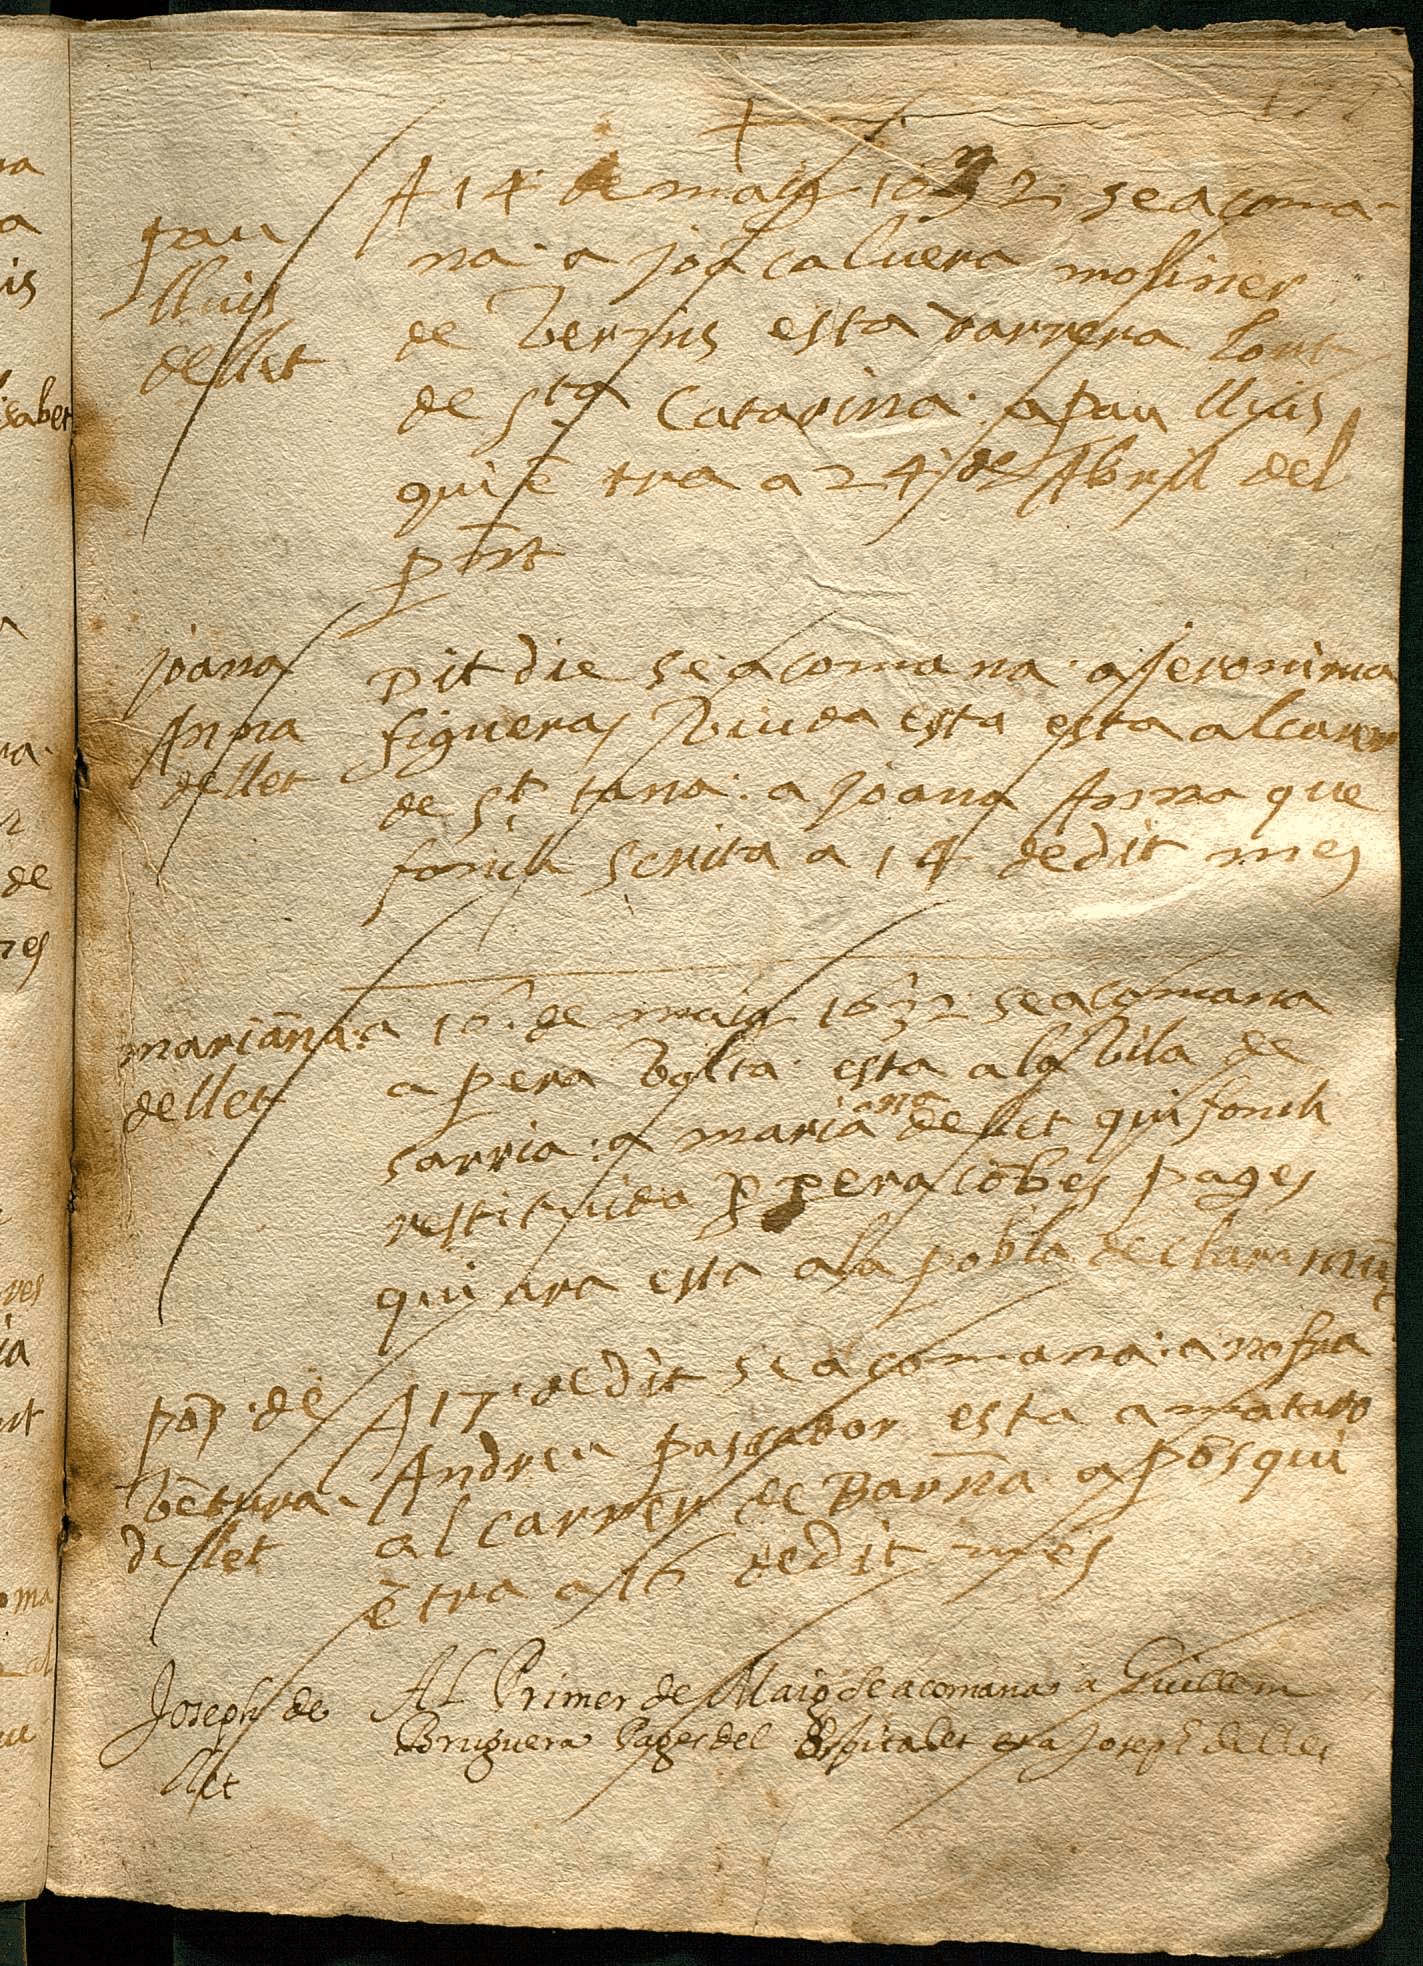 177
pau
lluis
de llet
A 14 de maig 1632 se acoma-
na a joã caluera moliner
de terçius esta darrera lort
de sta Catarina a pau lluis
qui ẽ tra a 24 de Abril del
pñt
joana
Anna
de llet
Dit die se acomana a jeronima
figueras viuda esta esta al carrer
de st tana a joana Anna que
fonch scrita a 14 de dit mes
mariãna
de llet
a 16 de maig 1632 se acomana
a pera volta esta a la vila de
sarria a mariaana de llet qui fonch
restituida p pera cõbes pages
qui ara esta a la pobla de claramũ
põs de
bẽtura
de llet
A 17 de dit se acomana a nofra
Andreu pascador esta a mataro
al carrer de Barña a põs qui
ẽ tra a 16 de dit mes
Joseph de
llet
Al Primer de Maig se acomana a Guillem
Bruguera Pages del Espitalet Joseph de llet